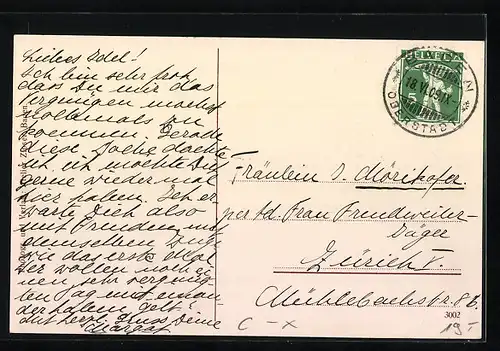 Liebes Idel!
Ich bin sehr froh
dass Du mir das
Vergnügen machst
nochmals zu
kommen. Gerade
diese Woche dachte
ich ich möchte Dich
gerne wieder mal
hier haben. Ich er-
warte Dich also
mit Freuden mit
demselben Zuge
wie das erste Mal
Wir wollen noch ei-
nen sehr vergnüg-
ten Tag miteinan-
der haben, gelt!
Mit herzl. Kuss Deine
Margot
HELVETIA
5
18.VI.09.IX-
OBERSTRASS
Fräulein I. Mörikofer
per Ad. Frau Frendweiler-
Jäger
Zürich V.
Mühlebachstr. 8
3002
C - x
19.-